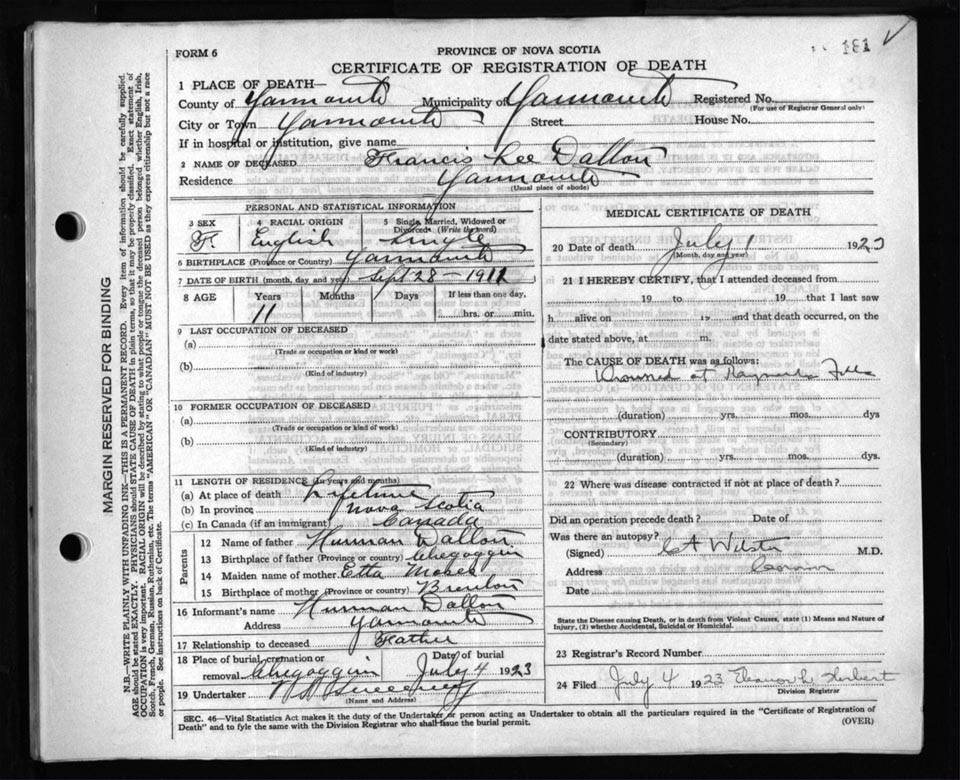 181
FORM 6
PROVINCE OF NOVA SCOTIA
CERTIFICATE OF REGISTRATION OF DEATH
1 PLACE OF DEATH—
County of Yarmouth Municipality of Yarmouth Registered No.
(For use of Registrar General only)
City or Town Yarmouth Street House No.
If in hospital or institution, give name
2 NAME OF DECEASED Francis Lee Dalton
Residence Yarmouth
(Usual place of abode)
PERSONAL AND STATISTICAL INFORMATION
3 SEX 4 RACIAL ORIGIN 5 Single, Married, Widowed or Divorced (Write the word)
F. English Single
6 BIRTHPLACE (Province or Country) Yarmouth
7 DATE OF BIRTH (month, day, and year) Sept 28 - 1912
8 AGE Years Months Days If less than one day,
11 hrs. or min.
9 LAST OCCUPATION OF DECEASED
(a)
(Trade or occupation or kind or work)
(b)
(Kind of industry)
10 FORMER OCCUPATION OF DECEASED
(a)
(Trade or occupation or kind of work)
(b)
(Kind of industry)
11 LENGTH OF RESIDENCE (In years and months)
(a) At place of death Lifetime
(b) In province Nova Scotia
(c) In Canada (if an immigrant) Canada
Parents
12 Name of father Hurman Dalton
13 Birthplace of father (Province or country) Chegoggin
14 Maiden name of mother Etta Moses
15 Birthplace of mother (Province or country) Brenton
16 Informant's name Hurman Dalton
Address Yarmouth
17 Relationship to deceased Father
18 Place of burial, cremation or removal Chegoggin Date of burial July 4 1923
19 Undertaker Sweeney
(Name and Address)
MEDICAL CERTIFICATE OF DEATH
20 Date of death July 1 1923
(Month, day and year)
21 I HEREBY CERTIFY, that I attended deceased from
19 to 19 that I last saw
h alive on 19 and that death occurred, on the
date stated above, at m.
The CAUSE OF DEATH was as follows:
Drowned at
(duration) yrs. mos. dys
CONTRIBUTORY
(Secondary)
(duration) yrs. mos. dys.
22 Where was disease contracted if not at place of death?
Did an operation precede death? Date of
Was there an autopsy?
(Signed) C A Webster M.D.
Address Coroner
Date
State the Disease causing Death, or in death from Violent Causes, state (1) Means and Nature of
Injury, (2) whether Accidental, Suicidal or Homicidal.
23 Registrar's Record Number
24 Filed July 4 1923 Eleanor L. Herbert
Division Registrar
SEC. 46—Vital Statistics Act makes it the duty of the Undertaker or person acting as Undertaker to obtain all the particulars required in the "Certificate of Registration of
Death" and to fyle the same with the Division Registrar who shall issue the burial permit. (OVER)
MARGIN RESERVED FOR BINDING
N.B.—WRITE PLAINLY WITH UNFADING INK—THIS IS A PERMANENT RECORD. Every item of information should be carefully supplied.
AGE should be stated EXACTLY. PHYSICIANS should STATE CAUSE OF DEATH in plain terms, so that it may be properly classified. Exact statement of
OCCUPATION is very important. RACIAL ORIGIN will be described by stating to what people or tongue the deceased person belonged whether English, Irish,
Scotch, French, German, Russian, Ruthenian, etc. The terms "AMERICAN" OR "CANADIAN" MUST NOT BE USED as they express citizenship but not a race
or people. See instructions on back of Certificate.